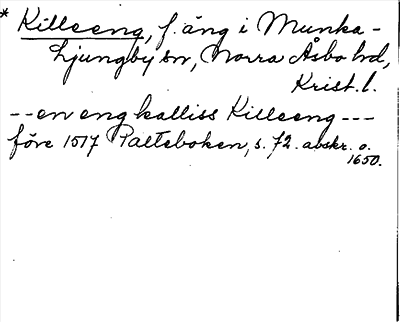 * Killeeng, f. äng i Munka-
Ljungby sn, Norra Åsbo hd,
Krist. l.
-- en eng kalliss Killeeng ---
före 1517 Palteboken, s. 72. avskr. o.
1650.